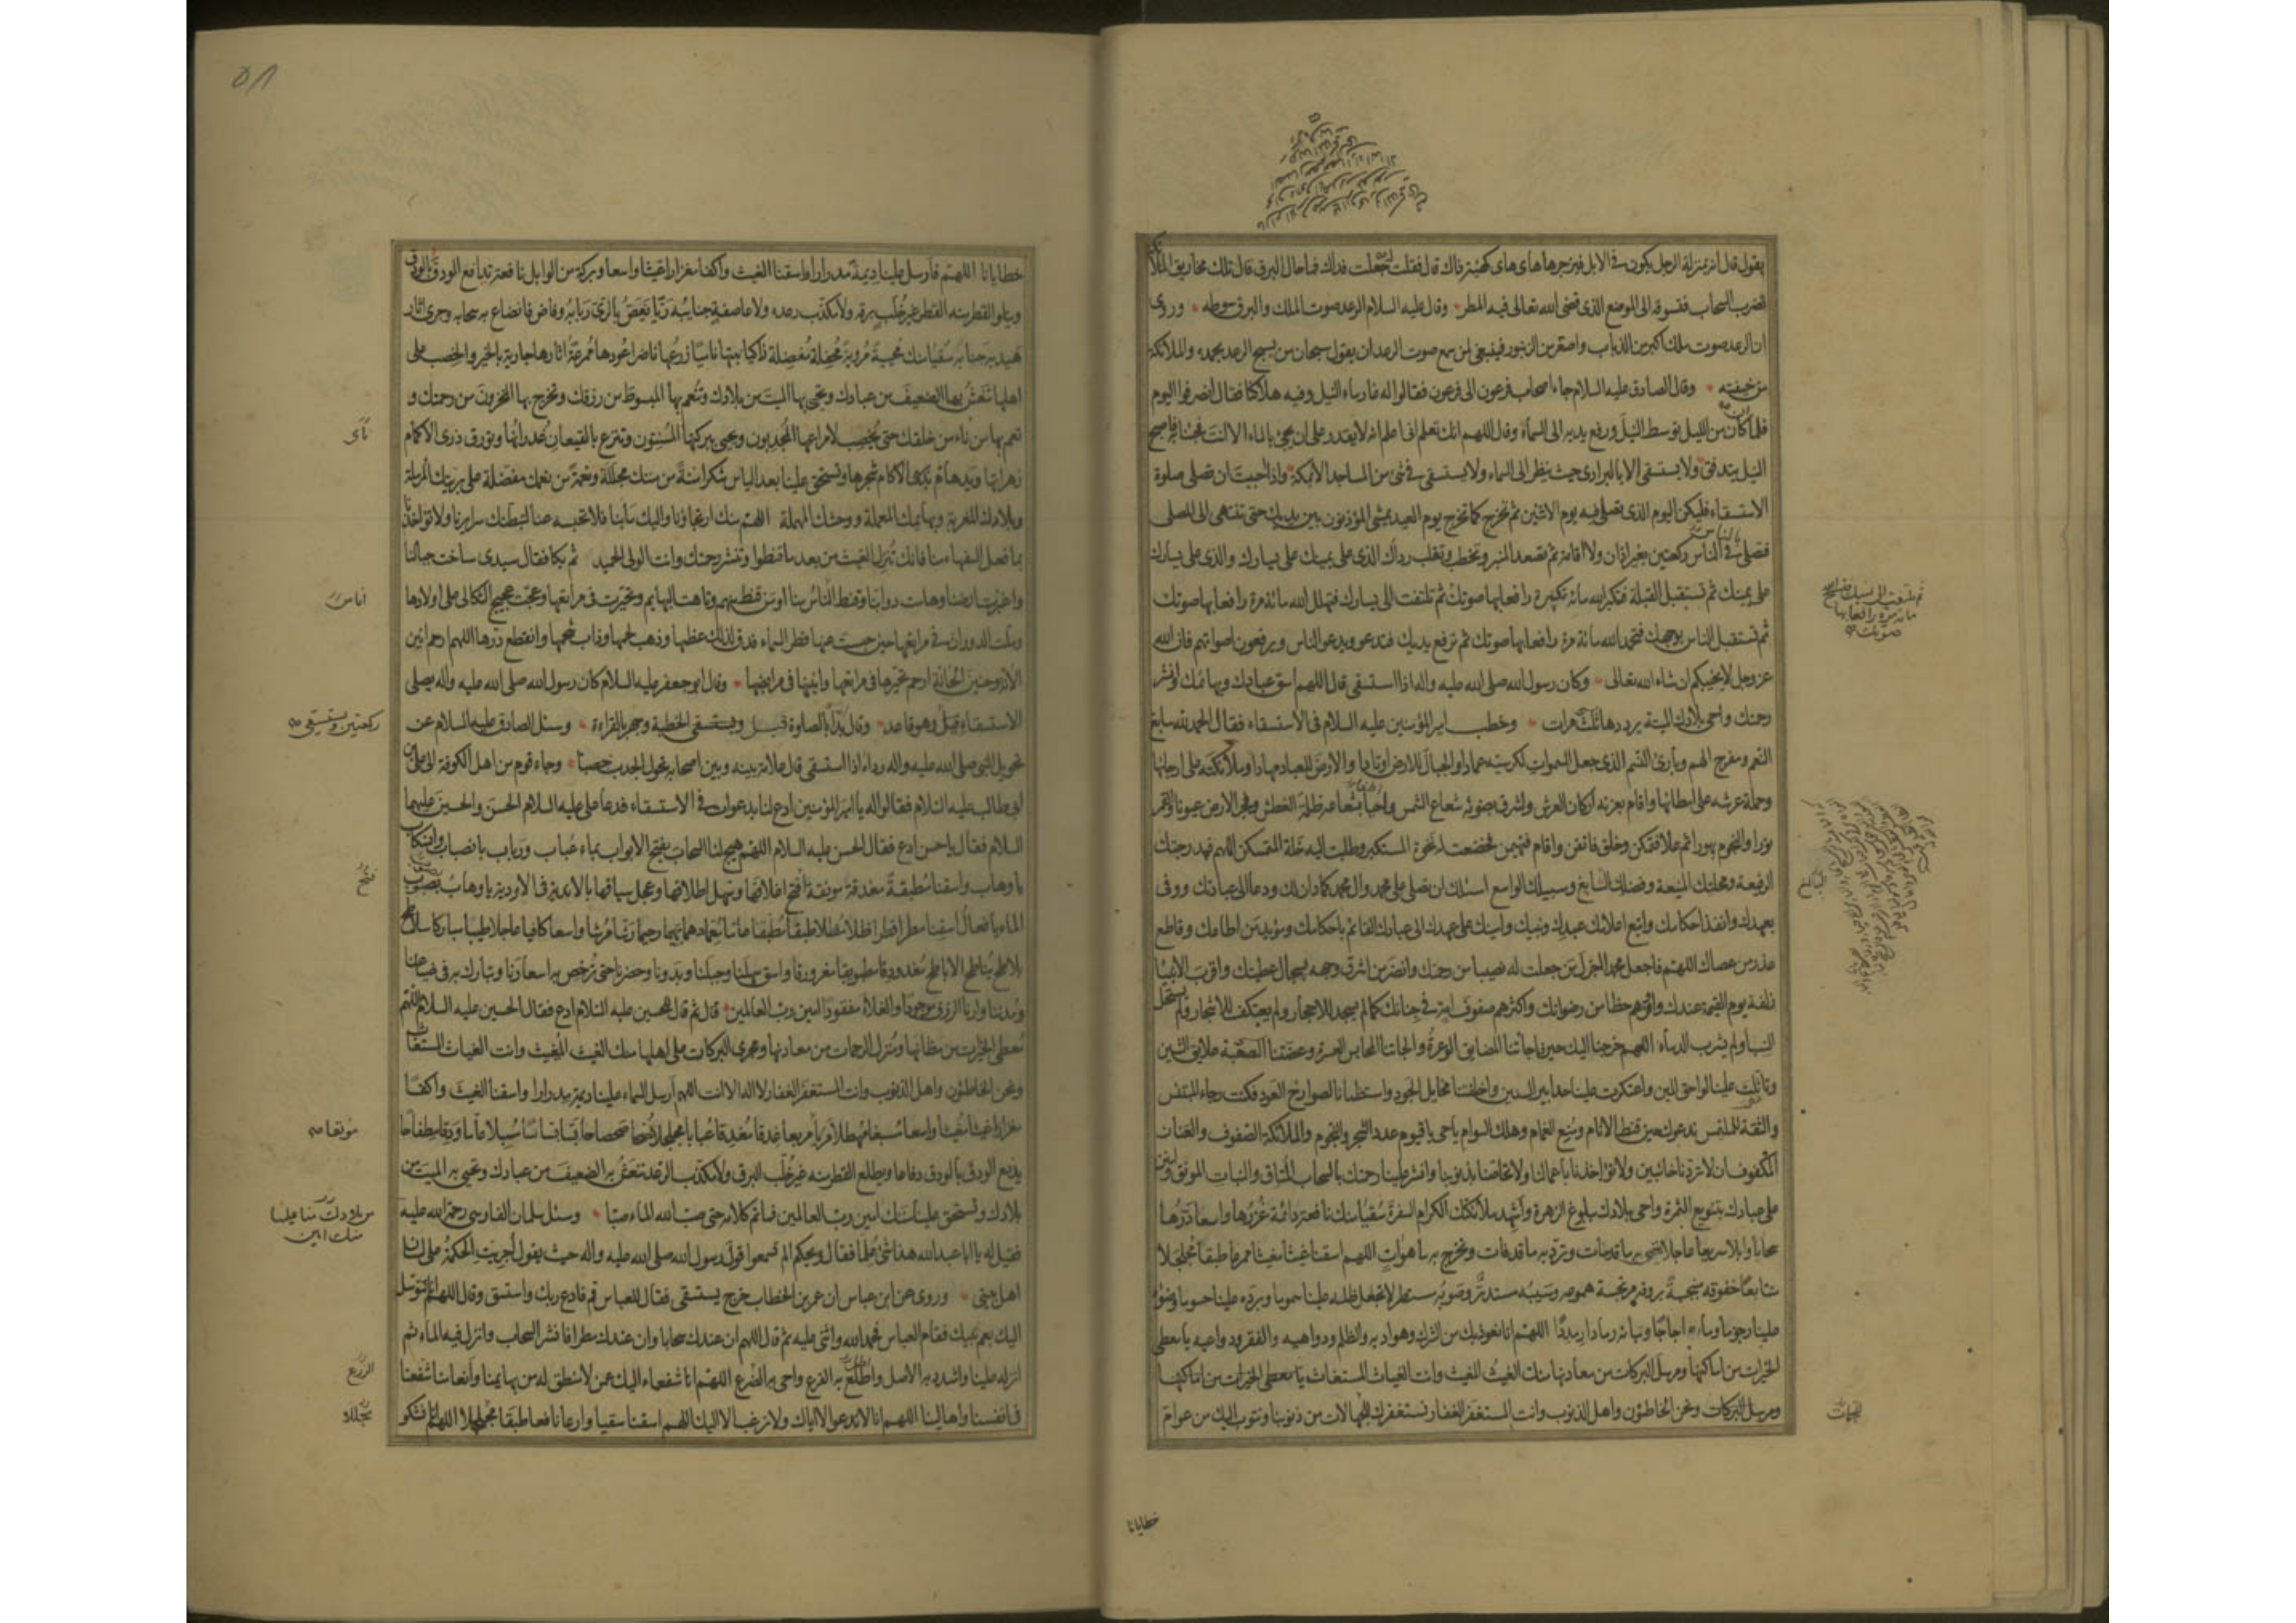 يقول قال انه بمنزلة الرجل يكون في الابل فيزجرها هاي هاي كهيئة ذاك قال فقلت جعلت فداك فما حال البرق قال تلك مخاريق الملائكة
تضرب السحاب فتسوقه الى الموضع الذي قضى الله تعالى فيه المطر وقال عليه السلام الرعد صوت الملك والبرق سوطه وروى
ان الرعد صوت ملك اكبر من الذباب واصغر من الزنبور فينبغي لمن سمع صوت الرعد ان يقول سبحان من يسبح الرعد بحمده والملائكة
من خيفته وقال الصادق عليه السلام جاء اصحاب فرعون الى فرعون فقالوا له غار ماء النيل وفيه هلاكنا فقال انصرفوا اليوم
فلما كان من الليل توسط النيل ورفع يديه الى السماء وقال اللهم انك تعلم اني اعلم انه لا يقدر على ان يجئ بالماء الا انت فجئنا به فاصبح
النيل يتدفق ولا يستسقى الا بالبراري حيث ينظر الى السماء ولا يستسقى في شئ من المساجد الا بمكة واذا احببت ان تصلي صلوة
الاستسقاء فليكن اليوم الذي تصلي فيه يوم الاثنين ثم تخرج كما تخرج يوم العيد يمشي المؤذنون بين يديك حتى تنتهى الى المصلى
فتصلي في الناس ركعتين بغير اذان ولا اقامة ثم تصعد المنبر وتخطب وتقلب رداك الذي على يمينك على يسارك والذي على يسارك
على يمينك ثم تستقبل القبلة فتكبر الله مائة تكبيرة رافعا بها صوتك ثم تلتفت الى يسارك فتهلل الله مائة مرة رافعا بها صوتك
ثم تستقبل الناس بوجهك فتحمد الله مائة مرة رافعا بها صوتك ثم ترفع يديك فتدعو ويدعو الناس ويرفعون اصواتهم فان الله
عز وجل لا يخيبكم ان شاء الله تعالى وكان رسول الله صلى الله عليه واله اذا استسقى قال اللهم اسق عبادك وبهائمك وانشر
رحمتك واحي بلادك الميتة يرددها ثلث مرات وخطب امير المؤمنين عليه السلام في الاستسقاء فقال الحمد لله سابغ
النعم ومفرج الهم وبارئ النسم الذي جعل السموات لكرسيه عمادا والجبال للارض اوتادا والارض للعباد مهادا وملائكته على ارجائها
وحملة عرشه على امطائها واقام بعزته اركان العرش واشرق بضوئه شعاع الشمس واحيا بشعاعه ظلمة الغطش وفجر الارض عيونا والقمر
نورا والنجوم بهورا ثم علا فتمكن وخلق فاتقن واقام فتهيمن فخضعت له نخوة المستكبر وطلبت اليه خلة المتمسكن اللهم فبدرجتك
الرفيعة ومحلتك المنيعة وفضلك السابغ وسبيلك الواسع اسئلك ان تصلي على محمد وال محمد كما دان لك ودعا الى عبادتك ووفى
بعهدك وانفذ احكامك واتبع اعلامك عبدك ونبيك وامينك على عهدك الى عبادك القائم باحكامك ومؤيد من اطاعك وقاطع
عذر من عصاك اللهم فاجعل محمدا اجزل من جعلت له نصيبا من رحمتك وانضر من اشرق وجهه بسجال عطيتك واقرب الانبياء
زلفة يوم القيمة عندك واوفرهم حظا من رضوانك واكثرهم صفوف امة في جنانك كما لم يسجد للاحجار ولم يعتكف للاشجار ولم يستحل
السبا ولم يشرب الدماء اللهم خرجنا اليك حين فاجأتنا المضايق الوعرة والجأتنا المحابس العسرة وعضتنا الصعبة علايق الشين
وتاثلت علينا لواحق المين واعتكرت علينا حدابير السنين واخلفتنا مخايل الجود واستظمانا لصوارخ العود فكنت رجاء المبتئس
والثقة للملتمس ندعوك حين قنط الانام ومنع الغمام وهلك السوام يا حي يا قيوم عدد الشجر والنجوم والملائكة الصفوف والعنان
المكفوف ان لا تردنا خائبين ولا تؤاخذنا باعمالنا ولا تخاصنا بذنوبنا وانشر علينا رحمتك بالسحاب المتاق والنبات المونق وامنن
على عبادك بتنويع الثمرة واحي بلادك ببلوغ الزهرة واشهد ملائكتك الكرام السفرة سقيا منك نافعة دائمة غزرها واسعا درها
سحابا وابلا سريعا عاجلا تحيي به ما قد مات وترد به ما قد فات وتخرج به ما هو ات اللهم اسقنا غيثا مغيثا ممرعا طبقا مجلجلا
متتابعا خفوقه منبجسة بروقه مرتجسة هموعه وسيبه مستدر وصوبه مسبطر لا تجعل ظله علينا سموما وبرده علينا حسوما وضوئه
علينا رجوما وماءه اجاجا ونباته رمادا رمددا اللهم انا نعوذ بك من الشرك وهواديه والظلم ودواهيه والفقر ودواعيه يا معطي
الخيرات من اماكنها ومرسل البركات من معادنها منك الغيث المغيث وانت الغياث المستغاث يا معطي الخيرات من اماكنها
ومرسل البركات ونحن الخاطئون واهل الذنوب وانت المستغفر الغفار نستغفرك للجهالات من ذنوبنا ونتوب اليك من عوام
خطايانا
٥٨
خطايانا اللهم فارسل علينا ديمة مدرارا واسقنا الغيث واكفا مغزارا غيثا واسعا وبركة من الوابل نافعة تدافع الودق بالودق
ويتلو القطر منه القطر غير خلب برقه ولا مكذب رعده ولا عاصفة جنايبه ريا يغص بالري ربابه وفاض فانصاع به سحابه وجرى اثار
هيدبه جنابه سقيا منك محيية مروية محفلة مفضلة زاكيا نبتها ناميا زرعها ناضرا عودها ممرعة اثارها جارية بالخير والخصب على
اهلها تنعش بها الضعيف من عبادك وتحيي بها الميت من بلادك وتنعم بها المبسوط من رزقك وتخرج بها المخزون من رحمتك و
تعم بها من ناء من خلقك حتى يخصب لامراعها المجدبون ويحيى ببركتها المسنتون وتترع بالقيعان غدرانها ويورق ذرى الاكمام
زهراتها ويدهام بذرى الاكام شجرها وتستحق علينا بعد الياس شكرا منة من مننك مجللة ونعمة من نعمك مفضلة على بريتك المرملة
وبلادك المعزبة وبهايمك المعملة ووحشك المهملة اللهم منك ارتجاؤنا واليك مآبنا فلا تحبسه عنا لتبطنك سرايرنا ولا تؤاخذنا
بما فعل السفهاء منا فانك تنزل الغيث من بعد ما قنطوا وتنشر رحمتك وانت الولي الحميد ثم بكا فقال سيدي ساخت جبالنا
واغبرت ارضنا وهامت دوابنا وقنط الناس منا او من قنط منهم وتاهت البهايم وتحيرت في مراتعها وعجت عجيج الثكالى على اولادها
وملت الدوران في مراتعها حين حبست عنها قطر السماء فدق لذلك عظمها وذهب لحمها وذاب شحمها وانقطع درها اللهم ارحم انين
الانة وحنين الحانة ارحم تحيرها في مراتعها وانينها في مرابضها وقال ابو جعفر عليه السلام كان رسول الله صلى الله عليه واله يصلي
الاستسقاء قبل وهو قاعد وقال بدأ بالصلوة قبل ويستسقى الخطبة وجهر بالقراءة وسئل الصادق عليه السلام عن
تحويل النبي صلى الله عليه واله رداءه اذا استسقى قال علامة بينه وبين اصحابه تحول الجدب خصبا وجاء قوم من اهل الكوفة الى علي بن
ابيطالب عليه السلام فقالوا له يا امير المؤمنين ادع لنا بدعوات في الاستسقاء فدعا علي عليه السلام الحسن والحسين عليهما
السلام فقال يا حسن ادع فقال الحسن عليه السلام اللهم هيج لنا السحاب بفتح الابواب بماء عباب ورباب بانصباب وانسكاب
يا وهاب واسقنا مطبقة مغدقة مونقة افتح اغلاقها وسهل اطلاقها وعجل سياقها بالاندية في الاودية يا وهاب بصوب
الماء يا فعال اسقنا مطرا قطرا طلا مطلا طبقا مطبقا عاما معما دهما بهيما رحيما رشا مرشا واسعا كافيا عاجلا طيبا مباركا سلاطح
بلاطح يناطح الاباطح مغدودقا مطبوبقا مغرورقا واسق سهلنا وجبلنا وبدونا وحضرنا حتى ترخص به اسعارنا وتبارك به في ضياعنا
ومدننا وارنا الرزق موجودا والغلاء مفقودا امين رب العالمين قال ثم قال للحسين عليه السلام ادع فقال الحسين عليه السلام اللهم
معطي الخيرات من مظانها ومنزل الرحمات من معادنها ومجري البركات على اهلها منك الغيث المغيث وانت الغياث المستغاث
ونحن الخاطئون واهل الذنوب وانت المستغفر الغفار لا اله الا انت اللهم ارسل السماء علينا ديمة مدرارا واسقنا الغيث واكفا
مغزارا غيثا مغيثا واسعا مسبغا مهطلا مريا مريعا غدقا مغدقا عبابا مجلجلا سحا سحساحا بسا بساسا مسبلا عاما ودقا مطفاحا
يدفع الودق بالودق دفاعا ويطلع القطر منه غير خلب البرق ولا مكذب الرعد تنعش به الضعيف من عبادك وتحيي به الميت من
بلادك وتستحق علينا مننك امين رب العالمين فما تم كلامه حتى صب الله الماء صبا وسئل سلمان الفارسي رحمة الله عليه
فقيل له يا ابا عبد الله هذا شئ علما فقال ويحكم الم تسمعوا قول رسول الله صلى الله عليه واله حيث يقول اجريت الحكمة على لسان
اهل بيتي وروى عن ابن عباس ان عمر بن الخطاب خرج يستسقى فقال للعباس قم فادع ربك واستسق وقال اللهم انا نتوسل
اليك بعم نبيك فقام العباس فحمد الله واثنى عليه ثم قال اللهم ان عندك سحابا وان عندك مطرا فانشر السحاب وانزل فيه الماء ثم
انزله علينا واشدد به الاصل واطلع به الفرع واحي به الضرع اللهم انا شفعاء اليك عمن لا منطق له من بهايمنا وانعامنا شفعنا
في انفسنا واهالينا اللهم انا لا ندعو الا اياك ولا نرغب الا اليك اللهم اسقنا سقيا وادعا نافعا طبقا مجلجلا اللهم انا نشكو
اناس
ركعتين ويستسقى
من بلادك منا علينا
مننك امين
الزرع
مجللا